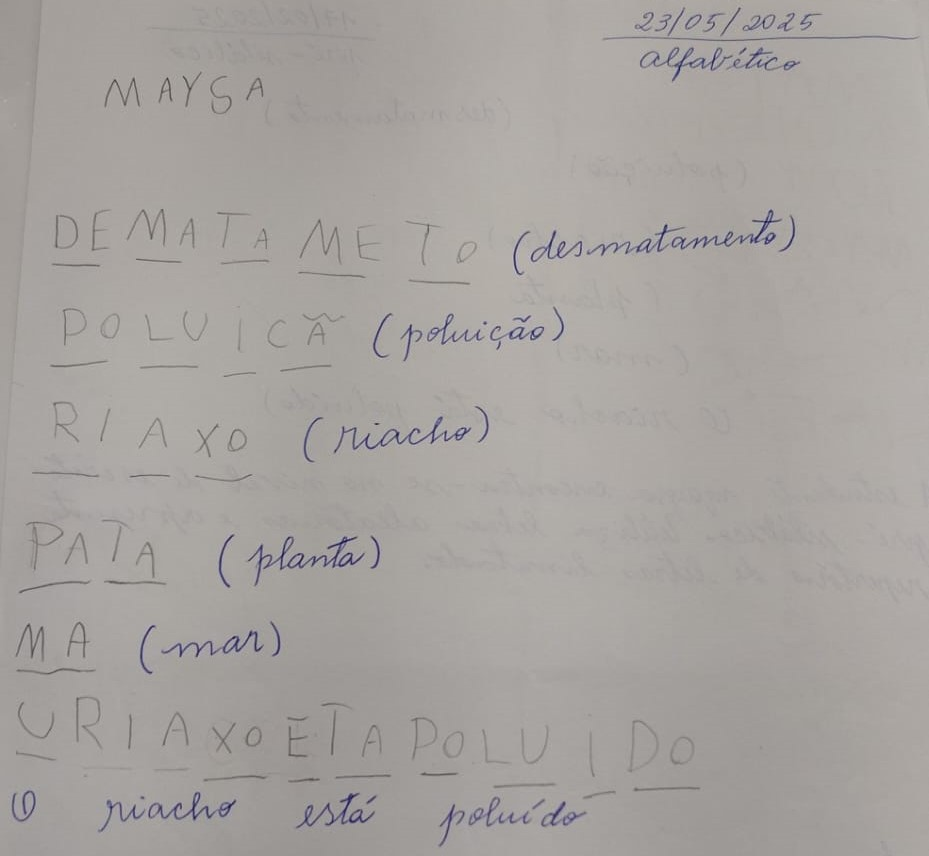 23/05/2025
alfabético
MAYSA
DEMATAMETO (desmatamento)
POLUICÃ (poluição)
RIAXO (riacho)
PATA (planta)
MA (mar)
URIAXOETAPOLUIDO
O riacho está poluído